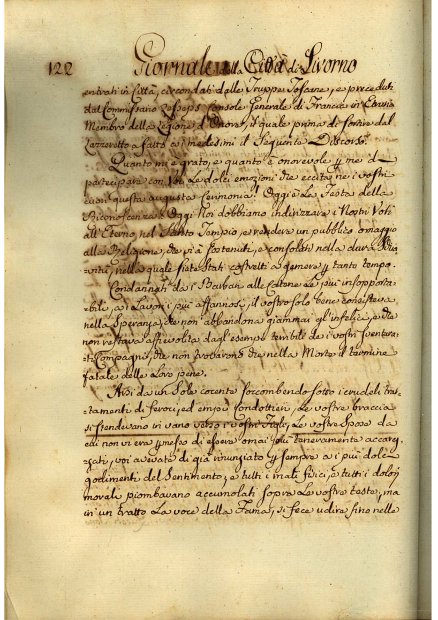 122 Giornale della Città di Livorno
entrati in Città, circondati dalle Truppe Toscane, e preceduti
dal Commissario Lesseps Console Generale di Francia in Etruria
Membro della Legione d'Onore, il quale prima di sortire dal
Lazzeretto a fatto ai medesimi il seguente Discorso.
Quanto mi è grato, e quanto è onorevole p me il
participare con Voi Le dolci emozioni che eccita ne i vostri
cuori questa augusta Cerimonia! Oggi è La Festa della
Riconoscenza. Oggi Noi dobbiamo indirizzare i Nostri Voti
all'Eterno, nel Santo Tempio, e rendere un pubblico omaggio
alla Religione, che vi à sostenuti, e consolati nella dura
nella quale siete stati costretti a gemere p tanto tempo.
Condannati da i Barbari alle Catene Le più insopporta-
bile, a i Lavori i più affannosi, il vostro solo bene consisteva
nella Speranza, che non abbandona giammai gl'infelici, e che
non restava affievolita dagl'esempo terribile de i vostri sventura-
ti Compagni, che non trovarono che nella Morte il termine
fatale delle Loro pene.
Arsi da un Sole cocente, soccombendo sotto i crudeli trat-
tamenti di feroci, ed empi condottieri, Le vostre braccia
si stendevano in vano verso i vostri Figli, Le vostre Spose da
cui non vi era p messo di essere omai più teneramente accarez-
zati, voi avevate di già rinunziato p sempre a i più dolci
godimenti del Sentimento, e tutti i mali fisici, e tutti i dolori
morali piombavano accumolati sopra Le vostre teste, ma
in un tratto La voce della Fama, si fece udire fino nelle